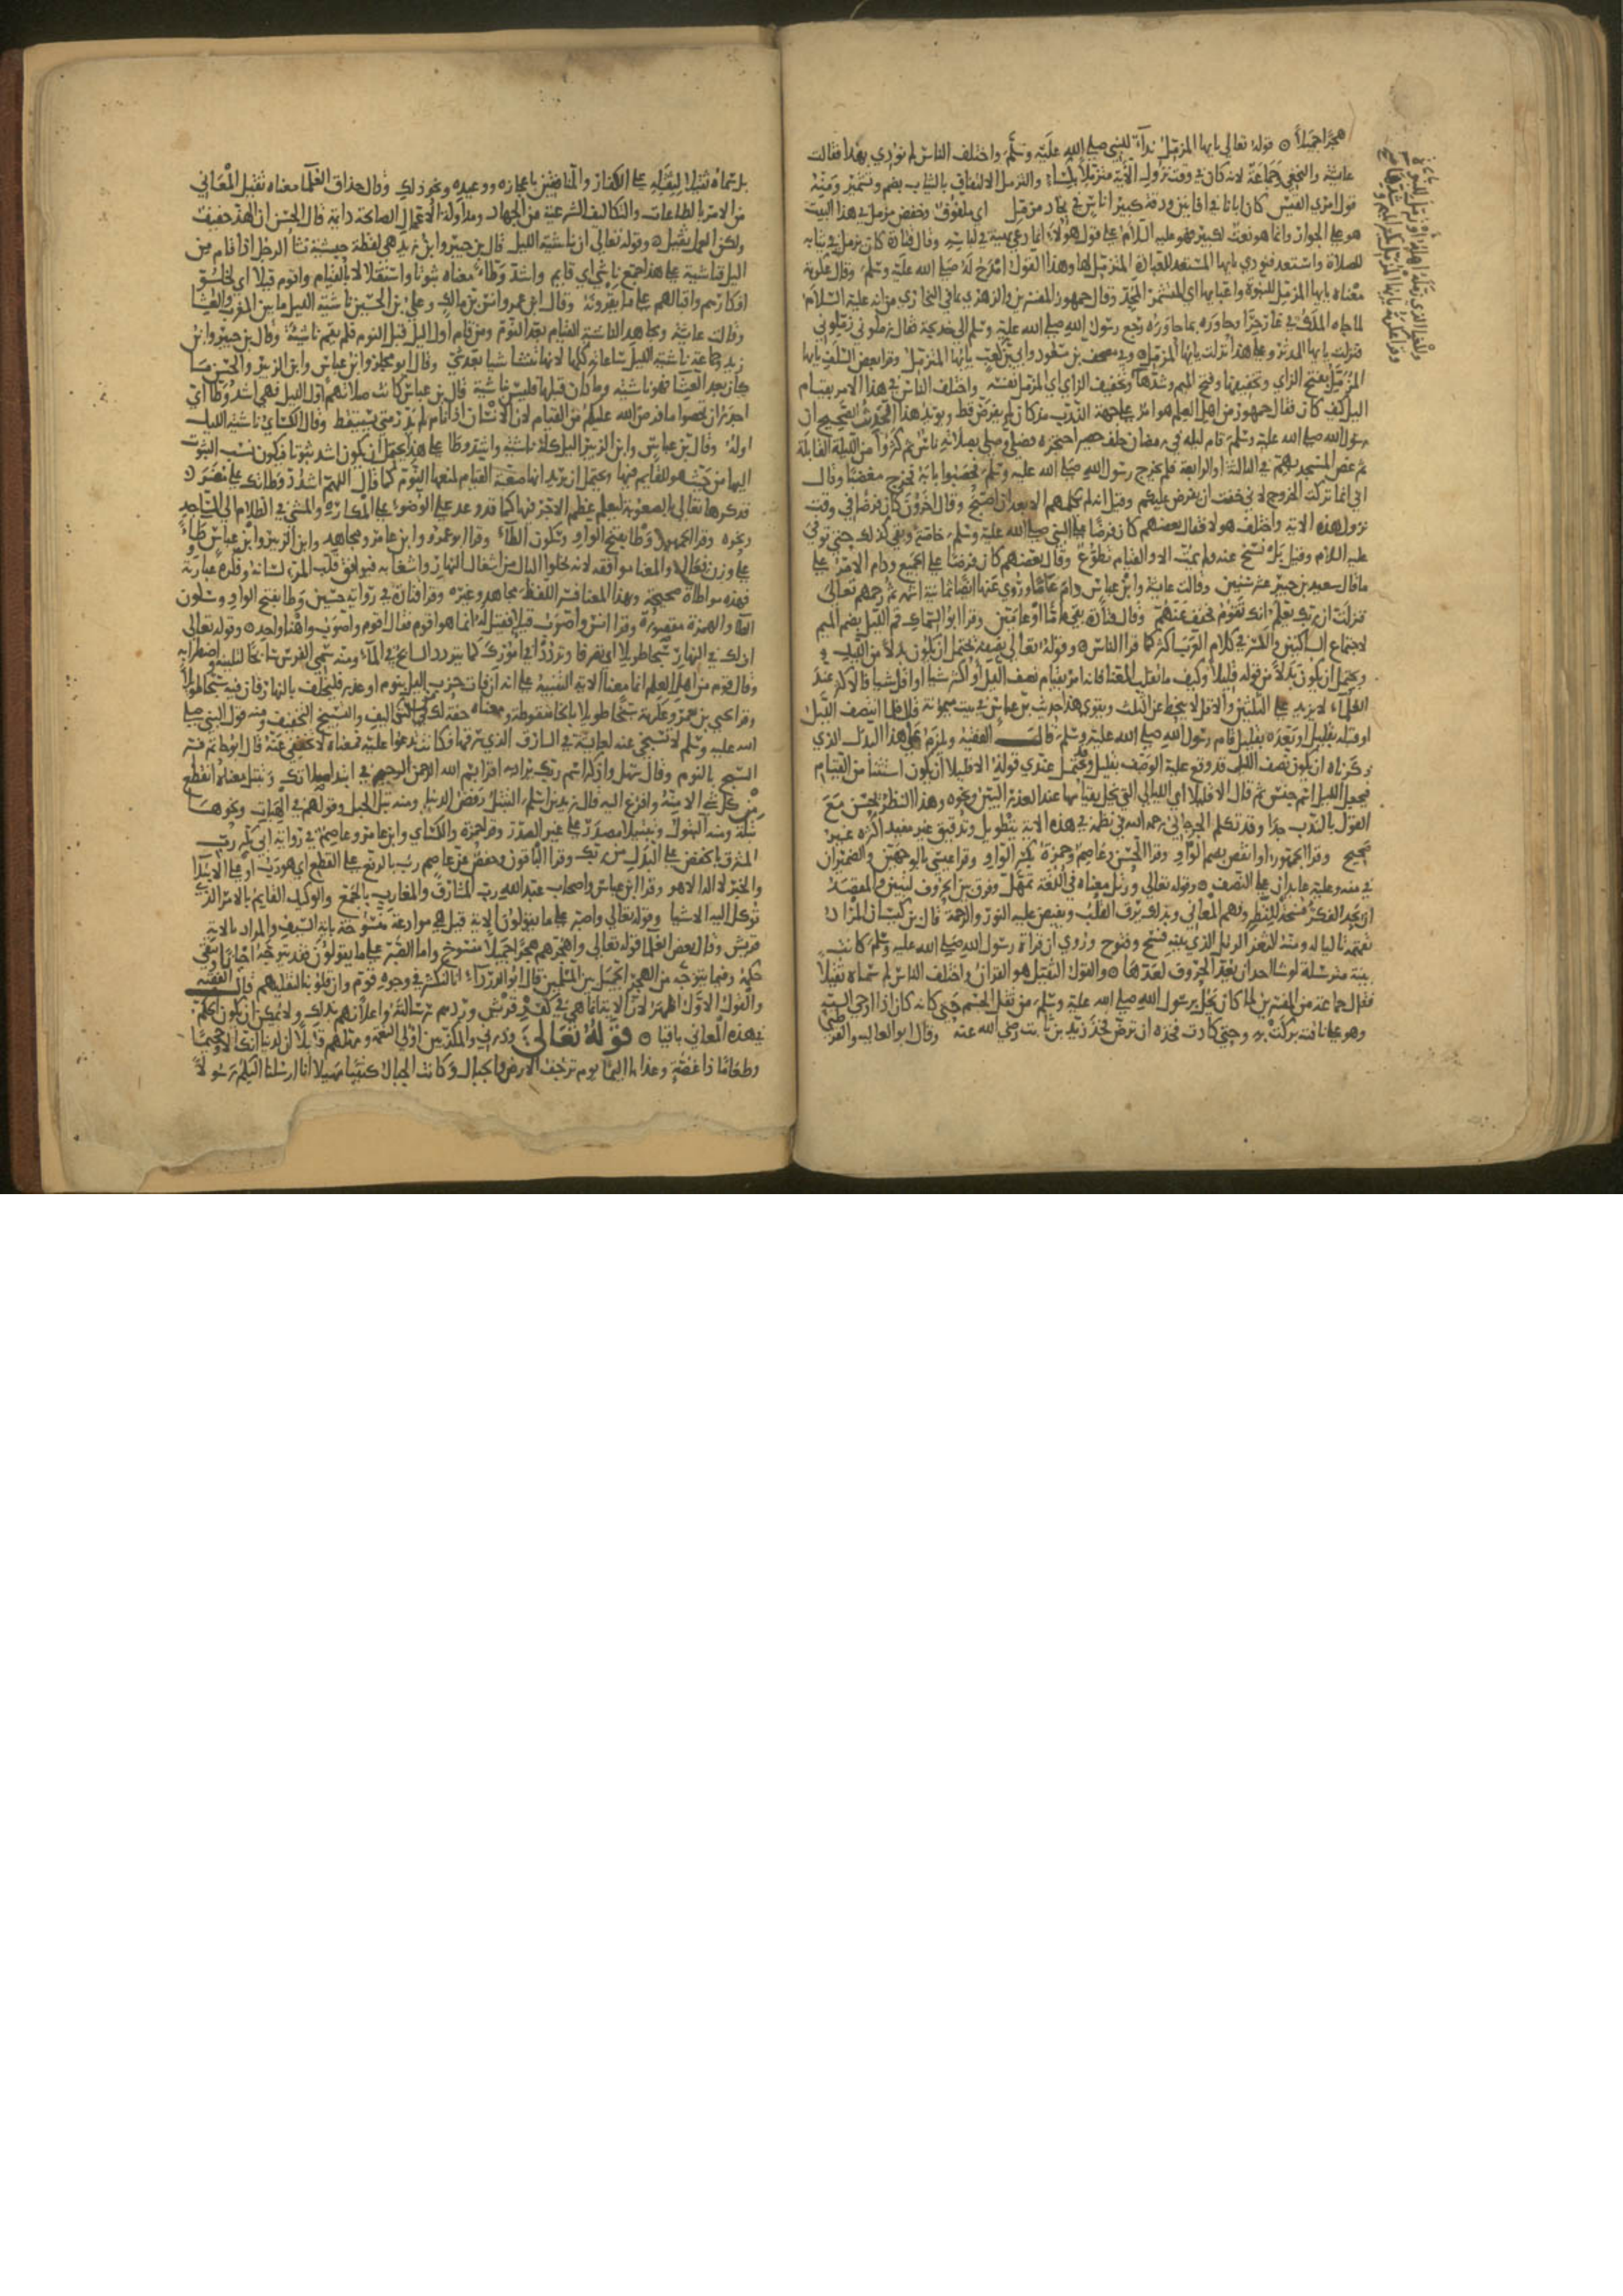 هجرا جميلا ۞ قوله تعالى يايها المزمل نداء للنبي صلى الله عليه وسلم واختلف الناس لم نودي بهذا فقالت
عايشة والنخعي وجماعة لانه كان في وقت نزول الاية متزملا بكساء والتزمل الالتفاف في الثياب بضم وتشمير ومنه
قول امرئ القيس كان ابانا في افانين ودقه كبير اناس في بجاد مزمل اي ملفوف وخفض مزمل في هذا البيت
هو على الجوار وانما هو نعت لكبير فهو عليه السلام على قول هولاء انما دعي بهيئة في لباسه وقال قتادة كان تزمل في ثيابه
للصلاة واستعد فنودي يايها المستعد للعبادة المتزمل لها وهذا القول امدح له صلى الله عليه وسلم وقال عكرمة
معناه يايها المزمل للنبوة واعبايها اي المتشمر المجد وقال جمهور المفسرين والزهري بما في البخاري من انه عليه السلام
لما جاه الملك في غار حرا وحاوره بما حاوره رجع رسول الله صلى الله عليه وسلم الى خديجة فقال زملوني زملوني
فنزلت يايها المدثر وعلى هذا نزلت يايها المزمل وفي مصحف بن مسعود وابي بن كعب يايها المتزمل وقرا بعض السلف يايها
المزمل بفتح الزاي وتخفيفها وفتح الميم وشدها وتخفيف الزاي اي المزمل نفسه واختلف الناس في هذا الامر بقيام
الليل كيف كان فقال جمهور من اهل العلم هو امر على جهة الندب مذ كان لم يفرض قط ويويد هذا الحديث الصحيح ان
رسول الله صلى الله عليه وسلم قام ليله في رمضان خلف حصير احتجره فصلى وصلى بصلاته ناس ثم كثروا من الليلة القابلة
ثم غص المسجد بهم في الثالثة او الرابعة فلم يخرج رسول الله صلى الله عليه وسلم فحصبوا بابه فخرج مغضبا وقال
اني انما تركت الخروج لاني خفت ان يفرض عليكم وقيل انه لم يكلمهم الا بعد ان اصبح وقال اخرون كان فرضا في وقت
نزول هذه الاية واختلف هولا فقال بعضهم كان فرضا على النبي صلى الله عليه وسلم خاصة وبقي كذلك حتى توفي
عليه السلام وقيل بل نسخ عنه ولم يمت الا والقيام تطوع وقال بعضهم كان فرضا على الجميع ودام الامر على
ما قال سعيد بن جبير عشر سنين وقالت عايشة وابن عباس دام عاما وروي عنها ايضا ثمانية اشهر ثم رحمهم تعالى
فنزلت ان ربك يعلم انك تقوم فخفف عنهم وقال قتادة بقي عاما او عامين وقرا ابو السماك قم الليل بضم الميم
لاجتماع الساكنين والكسر في كلام العرب اكثر كما قرا الناس ۞ وقوله تعالى نصفه يحتمل ان يكون بدلا من الليل
ويحتمل ان يكون بدلا من قوله قليلا وكيف ما تقلب المعنى فانه امر بقيام نصف الليل او اكثر شيا او اقل شيا فالاكثر عند
العلماء لا يزيد على الثلثين والاقل لا ينحط عن الثلث ويقوي هذا حديث بن عباس في بيت ميمونة قال فلما انتصف الليل
او قبله بقليل او بعده بقليل قام رسول الله صلى الله عليه وسلم قال الفقيه ويلزم على هذا البدل الذي
ذكرناه ان يكون نصف الليل قد وقع عليه الوصف بقليل ويحتمل عندي قوله الا قليلا ان يكون استثنا من القيام
فيجعل الليل اسم جنس ثم قال الا قليلا اي الليالي التي تخل بقيامها عند العذر البين ونحوه وهذا النظر يحسن مع
القول بالندب جدا وقد تكلم الجرجاني رحمه الله في نظمه في هذه الاية بتطويل وتدقيق غير مفيد اكثره غير
صحيح وقرا الجمهور او انقص بضم الواو وقرا الحسن وعاصم وحمزة بكسر الواو وقرا عيسى بالوجهين والضميران
في منه وعليه عايدان على النصف ۞ وقوله تعالى ورتل معناه في اللغة تمهل وفرق بين الحروف لتبين والمقصد
ان يجد الفكر فسحة للنظر وفهم المعاني وبذلك يرق القلب ويفيض عليه النور والرحمة قال بن كيسان المراد
تفهمه تاليا له ومنه الثغر الرتل الذي بينه فسح وفتوح وروي ان قراة رسول الله صلى الله عليه وسلم كانت
بينة مترسلة لو شا احد ان يعد الحروف لعدها ۞ والقول الثقيل هو القران واختلف الناس لم سماه ثقيلا
فقال جماعة من المفسرين لما كان يحل برسول الله صلى الله عليه وسلم من ثقل الجسم حتى كانه كان اذا اوحي اليه
وهو على ناقته بركت به وحتى كادت فخذه ان ترض فخذ زيد بن ثابت رضي الله عنه وقال ابو العالية والقرظي
بل سماه ثقيلا لثقله على الكفار والمنافقين باعجازه ووعيده ونحو ذلك وقال حذاق العلما معناه ثقيل المعاني
من الامر بالطاعات والتكاليف الشرعية من الجهاد ومداولة الاعمال الصالحة دايمة قال الحسن ان الهذ خفيف
ولكن العمل ثقيل ۞ وقوله تعالى ان ناشية الليل قال بن جبير وابن زيد هي لفظة حبشية نشا الرجل اذا قام من
الليل فناشية على هذا جمع ناشي اي قايم واشد وطاء معناه ثبوتا واستقلالا بالقيام واقوم قيلا اي لخلو
افكارهم واقبالهم على ما يقرونه وقال ابن عمر وانس بن مالك وعلي بن الحسين ناشية الليل ما بين المغرب والعشا
وقالت عايشة ومجاهد الناشية القيام بعد النوم ومن قام اول الليل قبل النوم فلم يقم ناشية وقال بن جبير وابن
زيد وجماعة ناشية الليل ساعاته كلها لانها تنشا شيا بعد شي وقال ابو مجلز وابن عباس وابن الزبير والحسن ما
كان بعد العشا فهو ناشية وما كان قبلها فليس بناشية قال بن عباس كانت صلاتهم اول الليل فهي اشد وطا اي
اجدر ان تحصوا ما فرض الله عليكم من القيام لان الانسان اذا نام لم يدر متى يستيقظ وقال الكساي ناشية الليل
اوله وقال بن عباس وابن الزبير الليل كله ناشية واشد وطا على هذا يحتمل ان يكون اشد ثبوتا فيكون نسب الثبوت
اليها من حيث هو للقايم فيها ويحتمل ان يريد انها صعبة القيام لمنعها النوم كما قال اللهم اشدد وطاتك على مضر ۞
فذكرها تعالى بالصعوبة ليعلم عظم الاجر فيها كما قد وعد على الوضوء على المكاره والمشي في الظلام الى المساجد
ونحوه وقرا الجمهور وطا بفتح الواو وسكون الطاء وقرا ابو عمرو وابن عامر ومجاهد وابن الزبير وابن عباس وطاء
على وزن فعال والمعنا موافقة لانه يخلوا البال من اشغال النهار واشغابه فيوافق قلب المرء لسانه وفكره عبارته
فهذه مواطاة صحيحة وبهذا المعنا فسر اللفظ مجاهد وغيره وقرا قتادة في رواية حسين وطا بفتح الواو وسكون
الطا والهمزة مقصورة وقرا انس واصوب قيلا فقيل له انما هو اقوم فقال اقوم واصوب واهيا واحد ۞ وقوله تعالى
ان لك في النهار سبحا طويلا اي تصرفا وترددا في امورك كما يتردد السابح في الماء ومنه سمي الفرس سابحا لتثنيه واضطرابه
وقال قوم من اهل العلم انما معنا الاية التنبيه على انه ان فات حزب الليل بنوم او عذر فليخلف بالنهار فان فيه سبحا طويلا
وقرا يحيى بن يعمر وعكرمة سبخا طويلا بالخا منقوطة ومعناه خفة لك من التكاليف والتسبيخ التخفيف ومنه قول النبي صلى
الله عليه وسلم لا تسبخي عنه لعايشة في السارق الذي سرقها فكانت تدعوا عليه فمعناه لا تخففي عنه قال ابو حاتم فسر
السبخ بالنوم وقال سهل واذكر اسم ربك يراد به اقرا بسم الله الرحمن الرحيم في ابتدا صلاتك وتبتل معناه انقطع
من كل شي الا منه وافزع اليه قال زيد بن اسلم التبتل رفض الدنيا ومنه بتل الحبل وقولهم في الهبات ونحوها
بتلة ومنه البتول وتبتيلا مصدر على غير الصدر وقرا حمزة والكساي وابن عامر وعاصم في رواية ابي بكر رب
المشرق بالخفض على البدل من ربك وقرا الباقون وحفص عن عاصم رب بالرفع على القطع اي هو رب او على الابتدا
والخبر لا اله الا هو وقرا ابن عباس واصحاب عبد الله رب المشارق والمغارب بالجمع والوكيل القايم بالامر الذي
توكل اليه الاشيا وقوله تعالى واصبر على ما يقولون الاية قيل هي موادعة منسوخة باية السيف والمراد بالاية
قريش وقال بعض العلما قوله تعالى واهجرهم هجرا جميلا منسوخ واما الصبر على ما يقولون فقد يتوجه احيانا ويبقى
حكمه وفيما يتوجه من الهجر الجميل بين المسلمين قال ابو الدرداء انا لنكشر في وجوه قوم وان قلوبنا لتقليهم قال الفقيه
والقول الاول اظهر لان الاية انما هي في كفر قريش وردهم رسالته واعلانهم بذلك ولا يمكن ان يكون الحكم
في هذه المعاني باقيا ۞ قوله تعالى وذرني والمكذبين اولي النعمة ومهلهم قليلا ان لدينا انكالا وجحيما
وطعاما ذا غصة وعذابا اليما يوم ترجف الارض والجبال وكانت الجبال كثيبا مهيلا انا ارسلنا اليكم رسولا